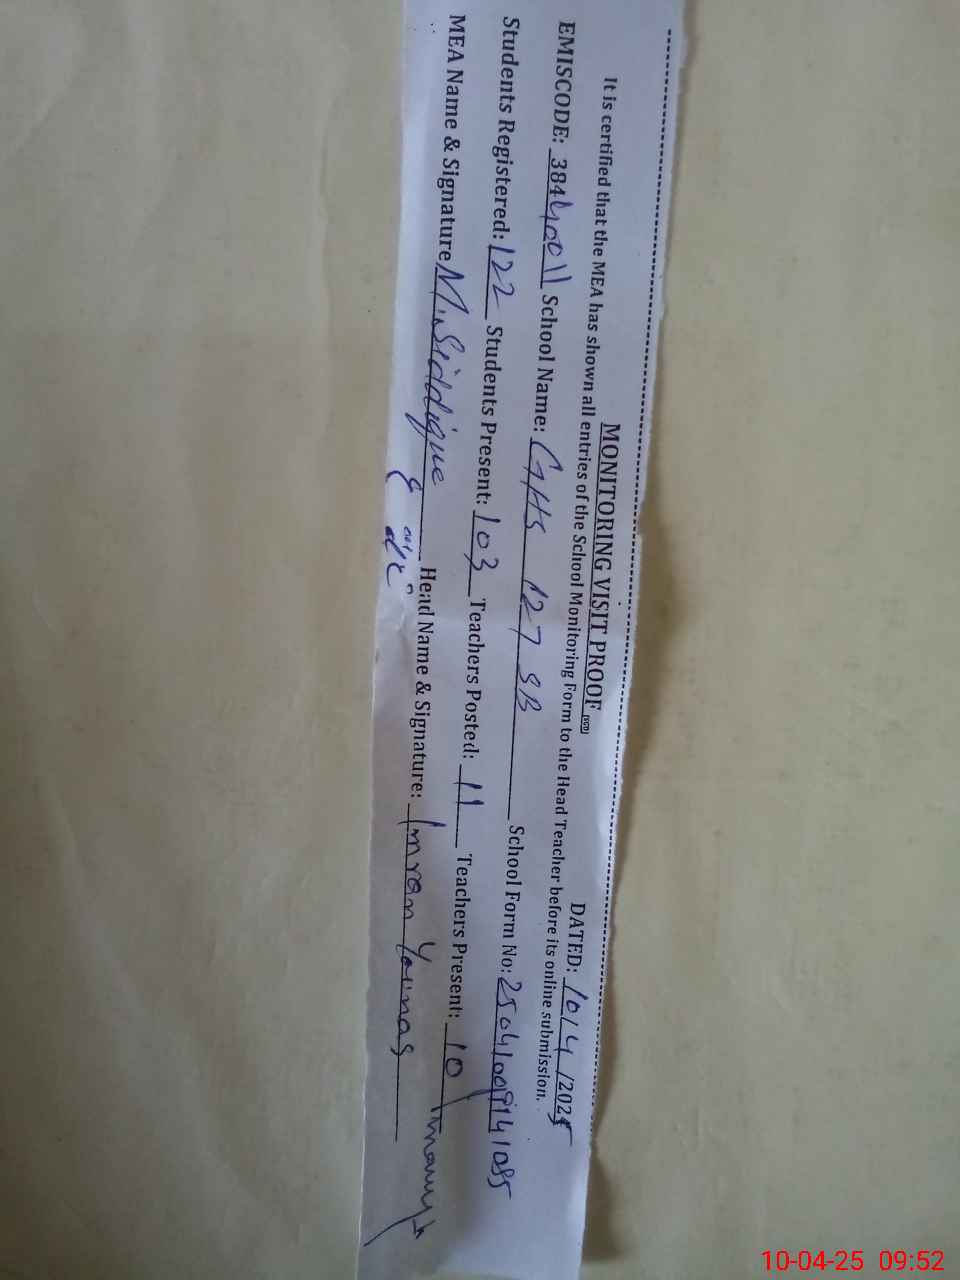 MONITORING VISIT PROOF DATED: 10/4/2025
It is certified that the MEA has shown all entries of the School Monitoring Form to the Head Teacher before its online submission.
EMISCODE: 38440011 School Name: GHS 127 SB School Form No: 
Students Registered: 122 Students Present: 103 Teachers Posted: 11 Teachers Present: 10
MEA Name & Signature M. Siddique Head Name & Signature: Imran Younas
10-04-25 09:52